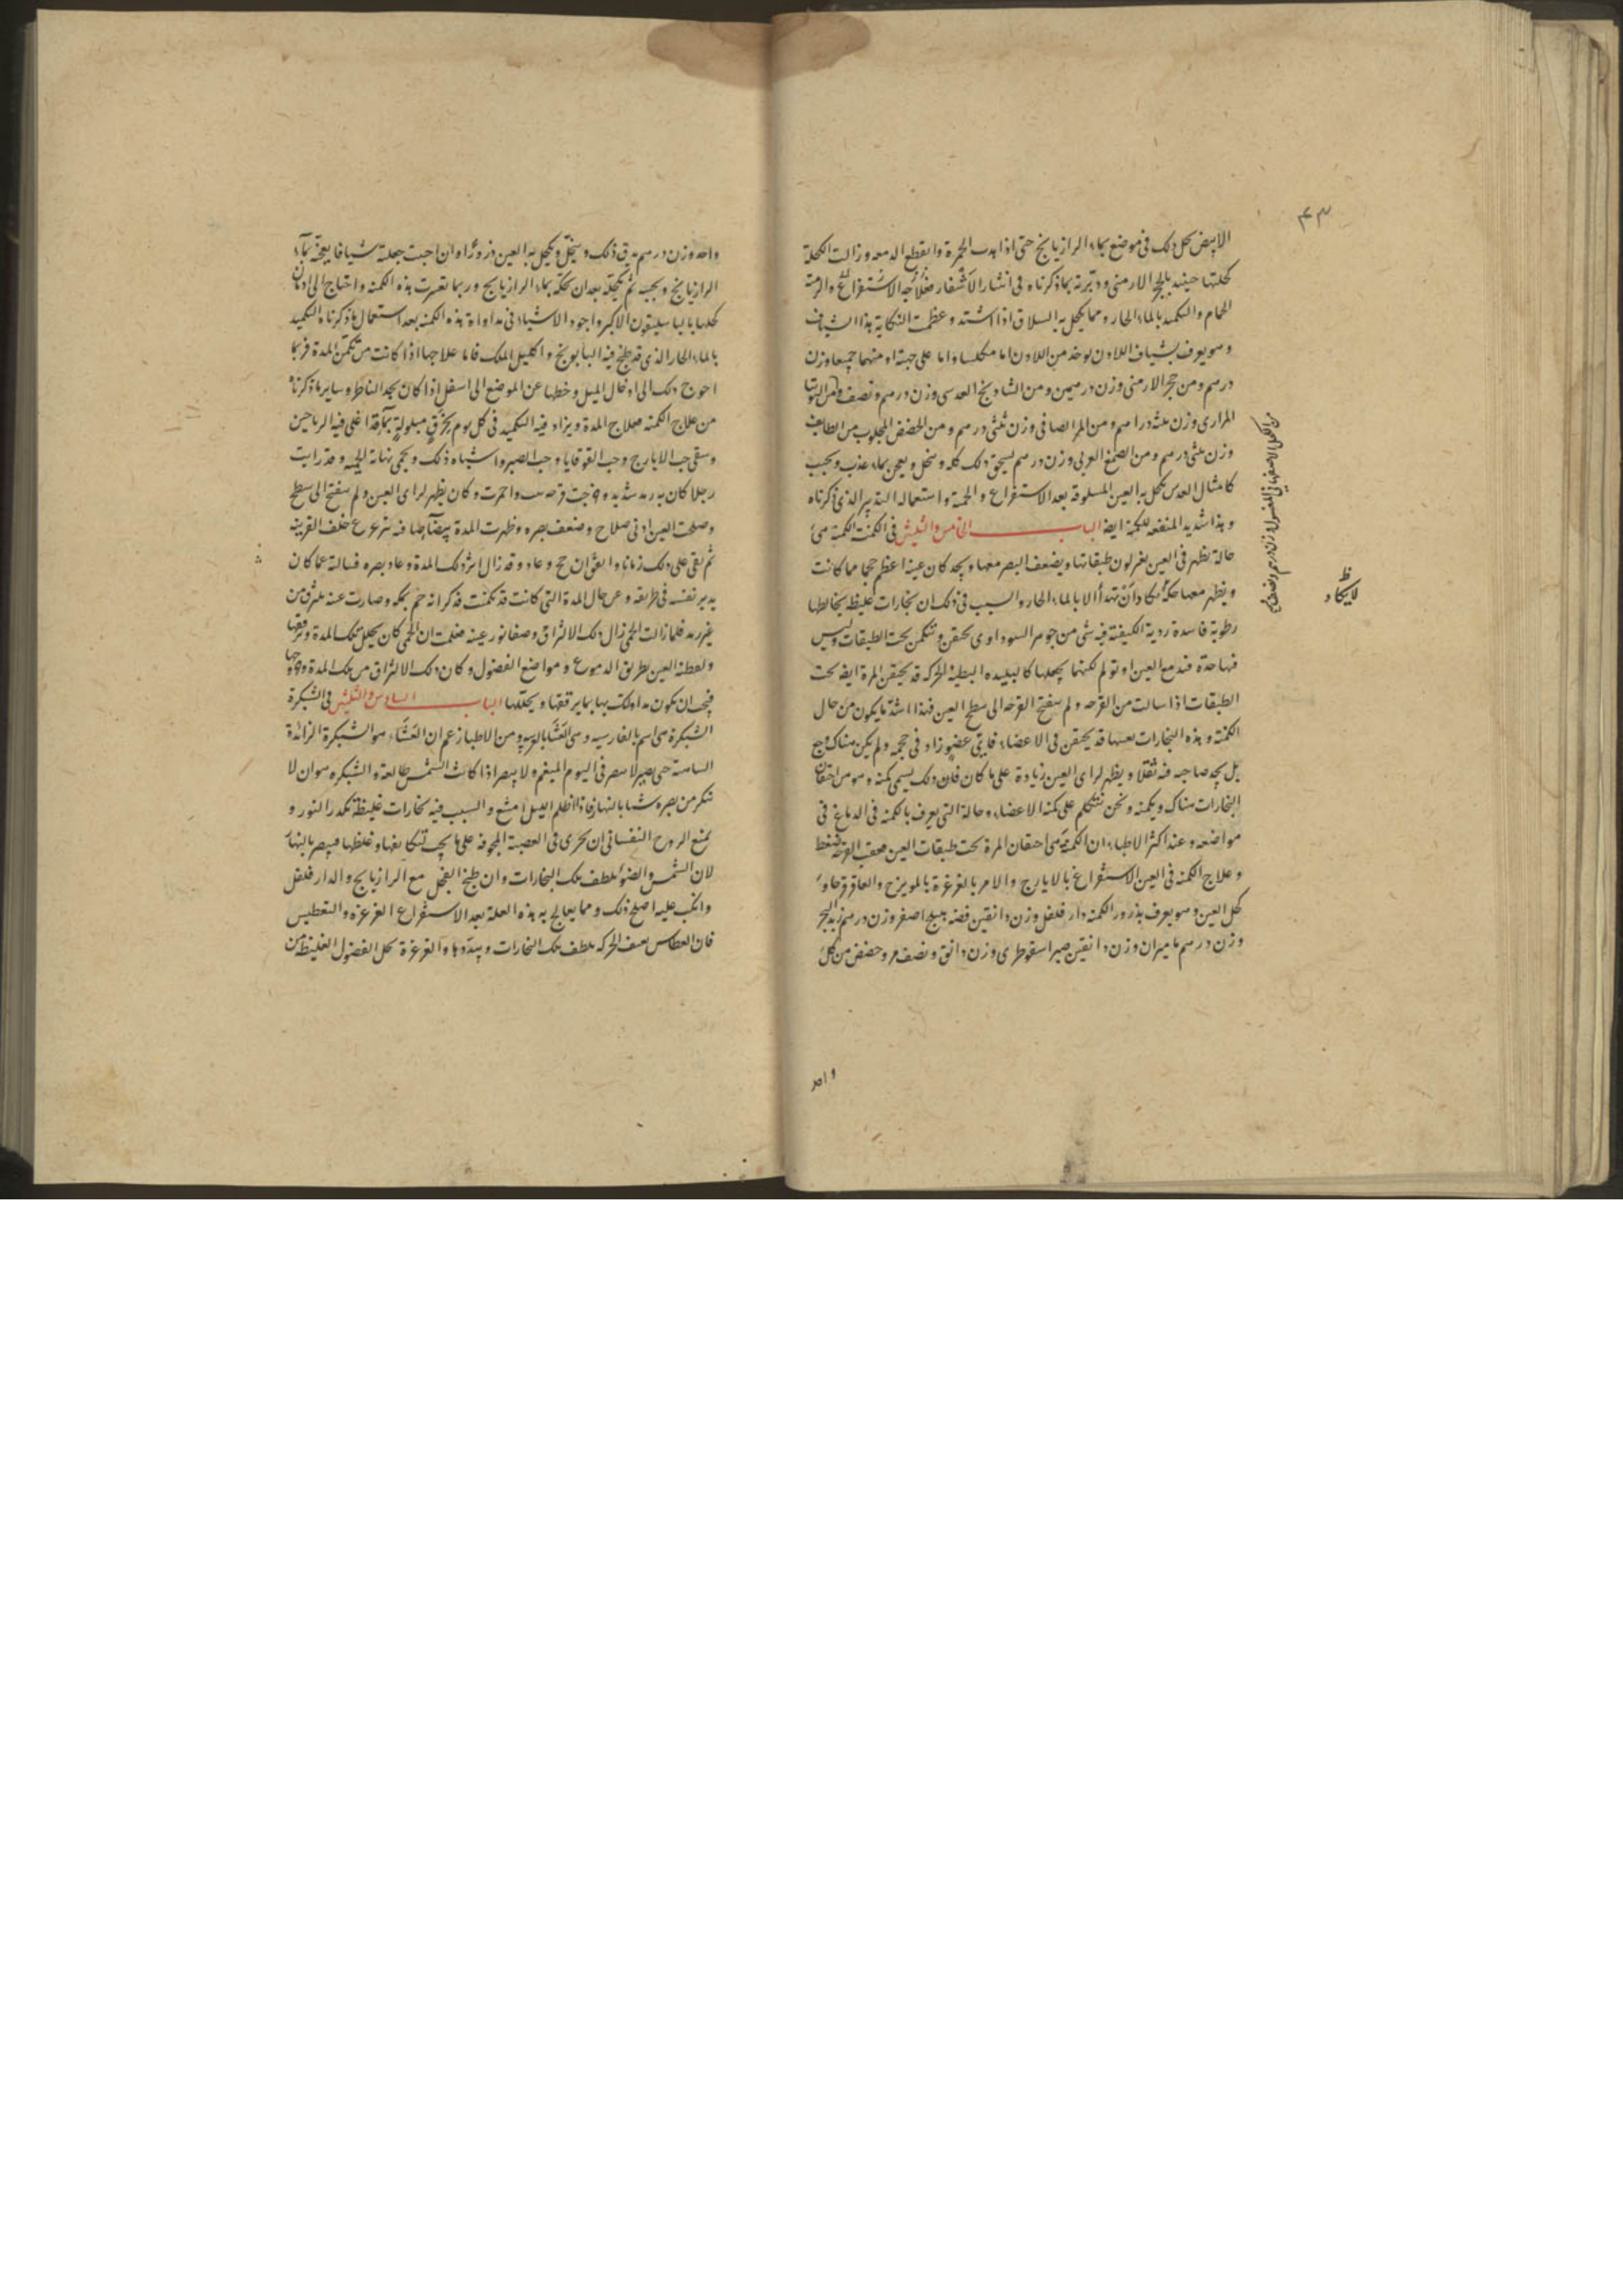 ٤٣
الابيض يحل ذلك في موضع بماء الرازيانج حتى اذا هدت الحمرة وانقطع الدمعه وزالت الكحلة
كحلتها حينئذ بالحجر الارمنى ودبرته بما ذكرناه فى انتثار الاشفار فعلاجه الاستفراغ والزمته
الحمام والتكميد بالماء الحار ومما يكحل به السلاق اذا اشتد وعظمت النكاية هذا الشياف
وهو يعرف بشياف اللاذن يوخذ من اللاذن اما مكلسا واما على جهته او منهما جميعا وزن
درهم ومن حجر الارمنى وزن درهمين ومن الشادنج العدسى وزن درهم ونصف ومن التوتيا
المرازى وزن ثلثه دراهم ومن المر الصافى وزن ثلثى درهم ومن الحضض المجلوب من الطايف
وزن ثلثى درهم ومن الصمغ العربى وزن درهم يسحق ذلك كله وينخل ويعجن بماء عذب ويحبب
كامثال العدس يكحل به العين المسلوقه بعد الاستفراغ والحمية واستعماله التدبير الذى ذكرناه
وهذا شديد المنفعه للكمنة ايضا الباب الخامس والثلثين فى الكمنة الكمنة هى
حالة تظهر فى العين تغير لون طبقاتها ويضعف البصر معها ويجد كان عينه اعظم حجما مما كانت
ويظهر معها حكة لا يكاد ان تهدأ الا بالماء الحار والسبب فى ذلك ان بخارات غليظه يخالطها
رطوبة فاسدة ردية الكيفية فيه شى من جوهر السوداوى يحتقن وتتكمن تحت الطبقات وليس
فيها حدة فتدمع العين او تولم لكنها يجعلها كالبليده البطية الحركه قد يحتقن المرة ايضا تحت
الطبقات اذا سالت من القرحه ولم ينفتح القرحه الى سطح العين فهذا اشد ما يكون من حال
الكمنة وهذه البخارات بعينها قد يحتقن فى الاعضاء فايى عضو زاد فى حجمه ولم يكن هناك وجع
بل يجد صاحبه فيه ثقلا ويظهر لراى العين زيادة على ما كان فان ذلك يسمى كمنه وهو من احتقان
البخارات هناك ويكمنه ونحن نتكلم على كمنة الاعضاء وحالة التى يعرف بالكمنه فى الدماغ فى
مواضعه وعند اكثر الاطباء ان الكمنة هى احتقان المرة تحت طبقات العين عقب القرحه فقط
وعلاج الكمنه فى العين الاستفراغ بالايارج والامر بالغرغرة بالمويزج والعاقرقرحا و
كحل العين وهو يعرف بذرور الكمنه دار فلفل وزن دانقين فضه هليلج اصفر وزن درهم زبد البحر
وزن درهم ماميران وزن دانقين صبر اسقوطرى وزن دانق ونصف مر وحضض من كل
واحد
من الكحل الاصفهانى المغسول وزن درهم ونصف
ظ
لا يكاد
واحد وزن درهم يدق ذلك وينخل ويكحل به العين ذرورا وان احببت جعلته شيافا يعجنه بماء
الرازيانج ويحببه ثم يكحله بعد ان تحكه بماء الرازيانج وربما تعسرت هذه الكمنه واحتاج الى ادمان
كحلها بالباسليقون الاكبر واجود الاشياء فى مداواة هذه الكمنه بعد استعمال ما ذكرناه التكميد
بالماء الحار الذى قد طبخ فيه البابونج واكليل الملك فاما علاجها اذا كانت من تكمن المدة فربما
احوج ذلك الى ادخال الميل وخطها عن الموضع الى اسفل اذا كان بحد الناظر وساير ما ذكرناه
من علاج الكمنه فعلاج المدة ويزاد فيه التكميد فى كل يوم بخرق مبلولة بماء قد اغلى فيه الرياحين
وسقى حب الايارج وحب القوقايا وحب الصبر واشباه ذلك ويحمى نهاية الحمية وقد رايت
رجلا كان به رمد شديد وخرجت قرحه واحمرت وكان يظهر لراى العين ولم ينفتح الى سطح
وصلحت العين ادنى صلاح وضعف بصره وظهرت المدة بيضا خلف القرنيه
ثم بقى على ذلك زمانا واتفق ان حج وعاد وقد زال اثر ذلك المدة وعاد بصره فسالته عما كان
يدبر نفسه فى طريقه وعن حال المدة التى كانت قد تكمنت فذكر انه حم بمكه وصارت عينه تلتزق من
غير رمد فلما زالت الحمى زال ذلك الالتزاق وصفا نور عينه فعلمت ان الحمى كان يحلل تلك المدة وترققها
ولفظته العين بطريق الدموع ومواضع الفضول وكان ذلك الالتزاق من تلك المدة وخروجها
فيجب ان يكون مداواتك بها بما يرققها ويحللها الباب السادس والثلثين فى الشبكرة
الشبكرة هى اسم بالفارسيه وهى العشا بالعربيه ومن الاطبا زعم ان العشاء هو الشبكرة الزائدة
حتى يصير لا يبصر فى اليوم المغيم ولا يبصر اذا كانت الشمس طالعة والشبكره هو ان لا
ينكر من بصره شيا بالنهار فاذا اظلم الليل امتنع والسبب فيه بخارات غليظة تكدر النور و
يمنع الروح النفسانى ان يجرى فى العصبة المجوفه على ما يجب لتكاثفها وغلظها فيبصر بالنهار
لان الشمس والضوء يلطف تلك البخارات وان طبخ الفجل مع الرازيانج والدار فلفل
وانكب عليه اصلح ذلك ومما يعالج به هذه العلة بعد الاستفراغ الغرغره والتعطيس
فان العطاس بعنف الحركه يلطف تلك البخارات ويبددها والغرغرة تحلل الفضول الغليظه من